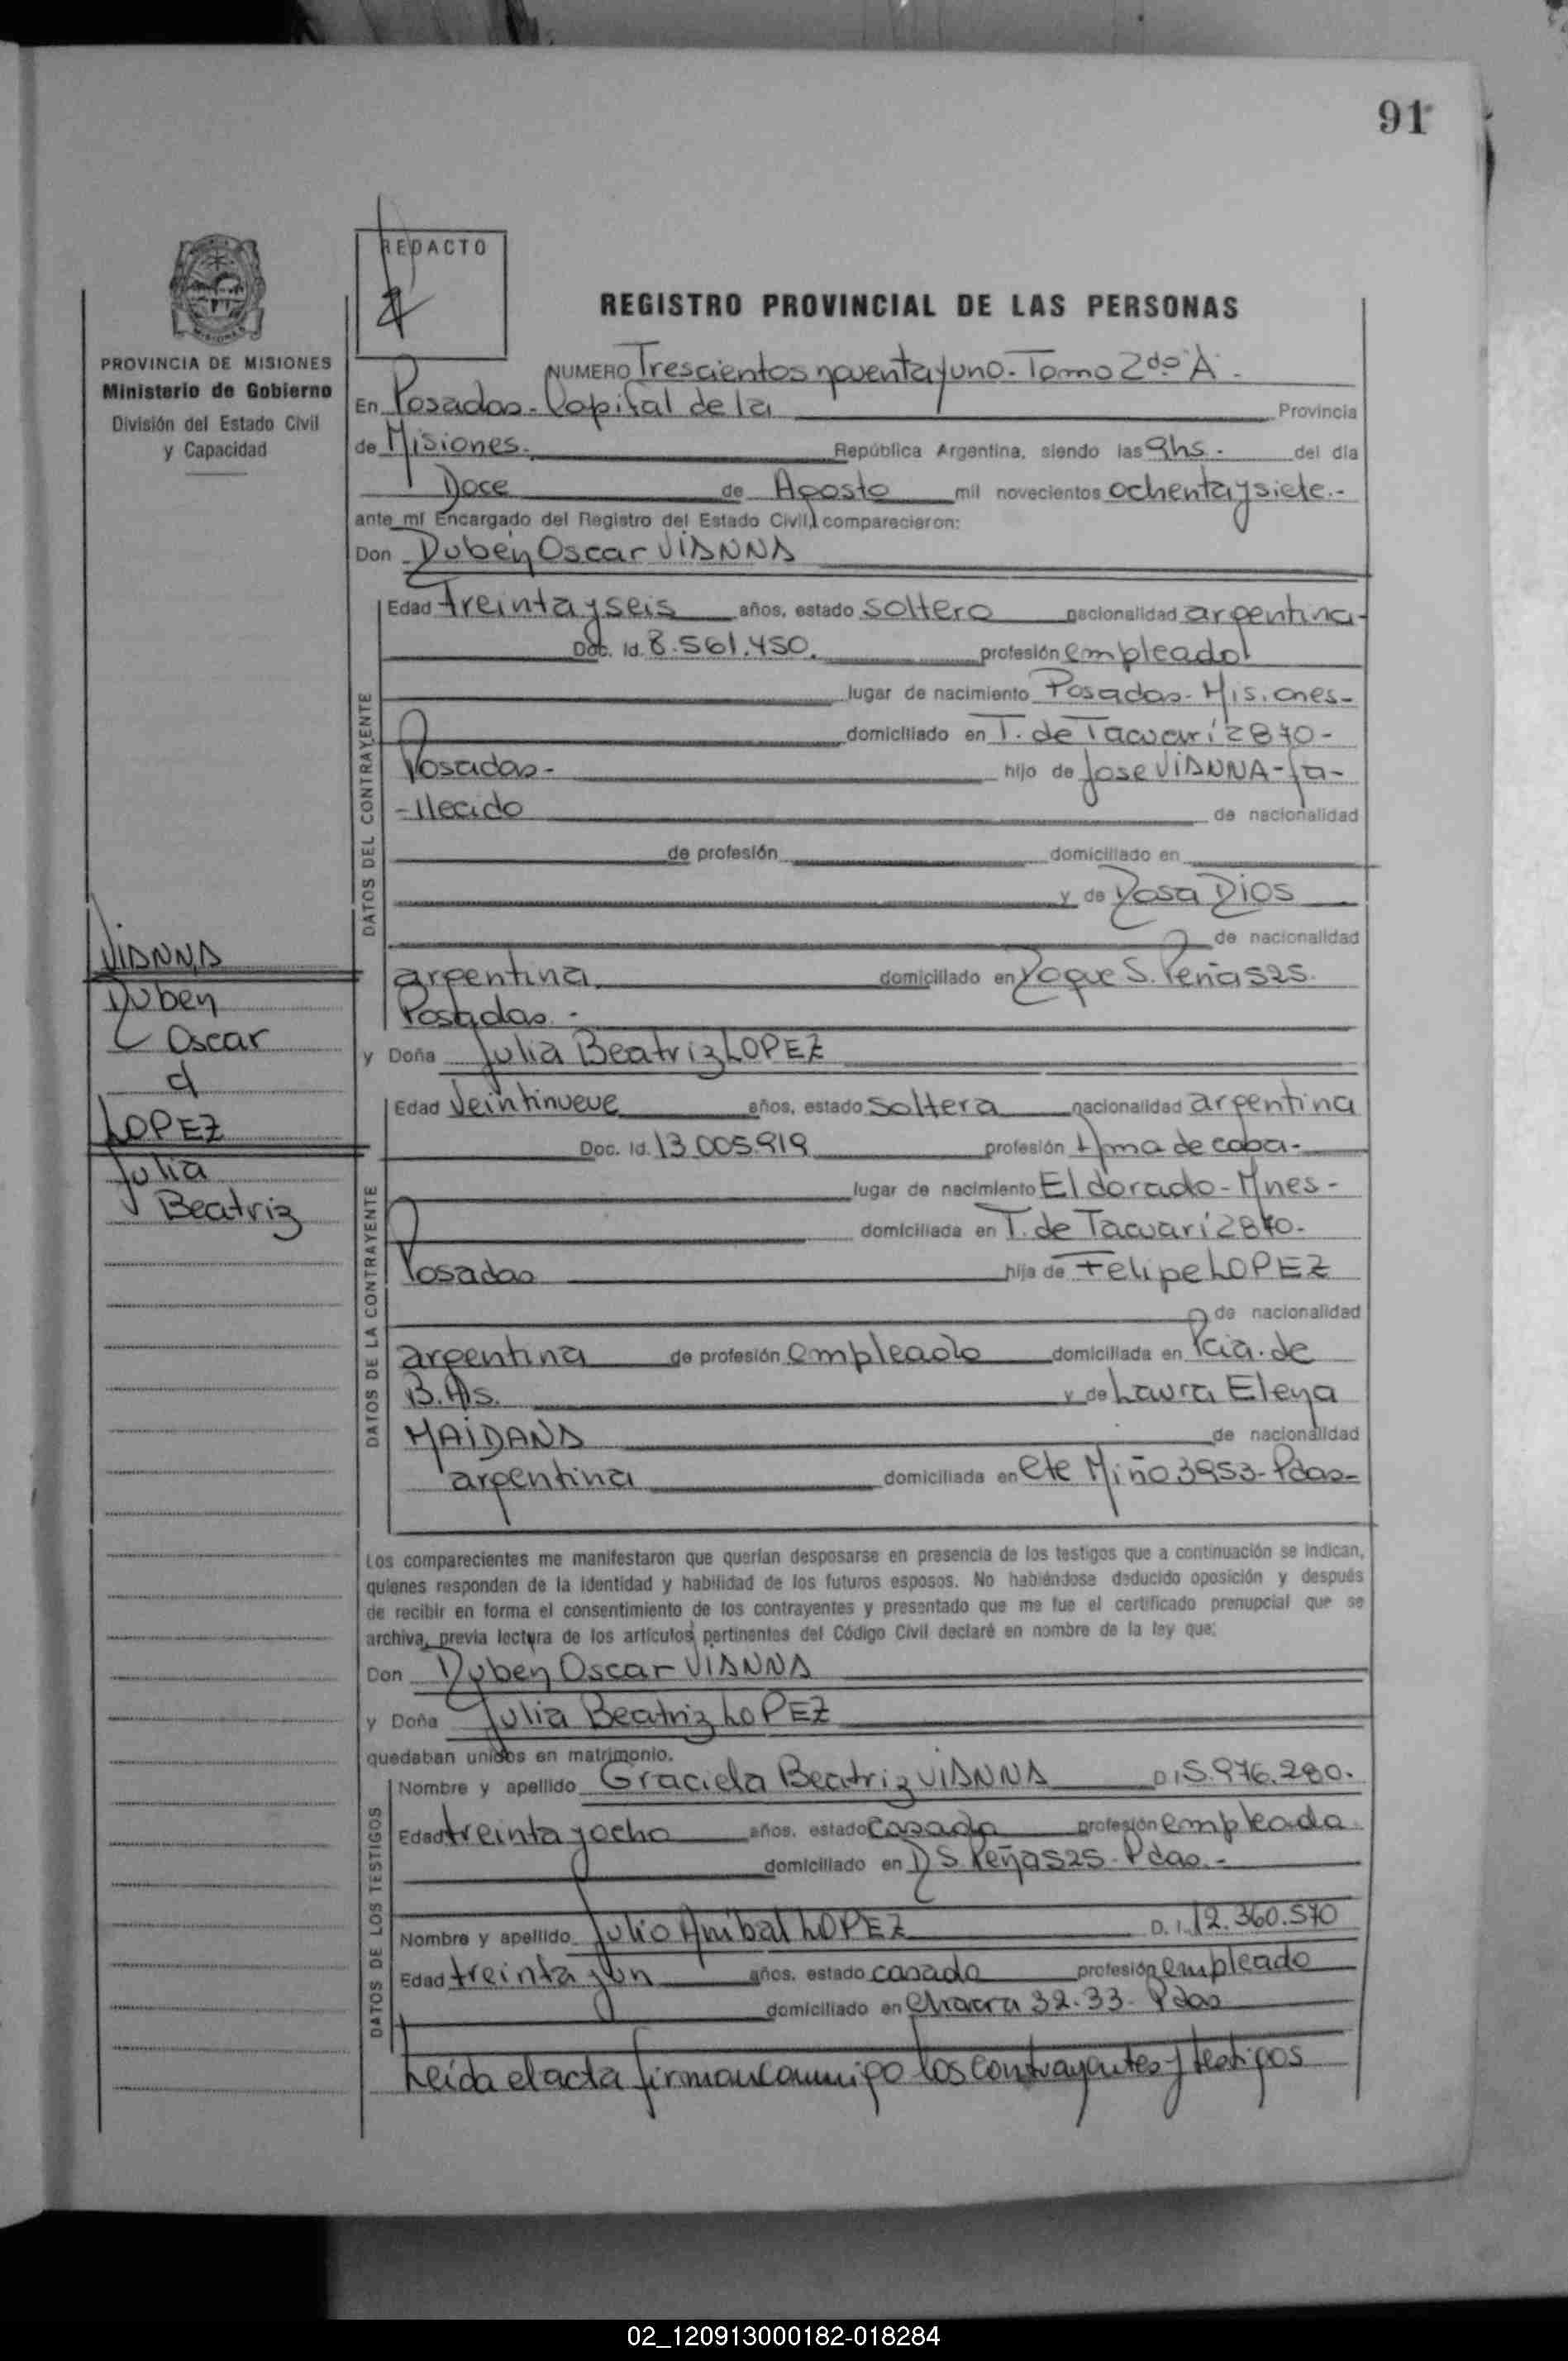 91
REDACTO
REGISTRO PROVINCIAL DE LAS PERSONAS
PROVINCIA DE MISIONES
Ministerio de Gobierno
División del Estado Civil
y Capacidad
NUMERO Trescientos noventa y uno.- Tomo 2do "A".-
En Posadas - Capital de la Provincia
de Misiones. República Argentina, siendo las 9hs. del día
Doce de Agosto mil novecientos ochenta y siete.-
ante mí Encargado del Registro del Estado Civil, comparecieron:
Don Ruben Oscar VIANNA
DATOS DEL CONTRAYENTE
Edad treinta y seis años, estado soltero nacionalidad argentina-
Doc. Id. 8.561.450. profesión empleado
lugar de nacimiento Posadas - Misiones-
domiciliado en T. de Tacuarí 2870-
Posadas- hijo de Jose VIANNA - fa-
-llecido de nacionalidad
de profesión domiciliado en
y de Rosa Rios
de nacionalidad
argentina domiciliado en Roque S. Peña 525.
Posadas.-
VIANNA
Ruben
Oscar
LOPEZ
Julia
Beatriz
y Doña Julia Beatriz LOPEZ
DATOS DE LA CONTRAYENTE
Edad Veintinueve años, estado soltera nacionalidad argentina
Doc. Id. 13.005.919 profesión Ama de casa-
lugar de nacimiento Eldorado - Mnes-
domiciliada en T. de Tacuarí 2870-
Posadas hija de Felipe LOPEZ
de nacionalidad
argentina de profesión empleado domiciliada en Pcia. de
B. As. y de Laura Elena
MAIDANA de nacionalidad
argentina domiciliada en Cte Miño 3953 - Pdas-
Los comparecientes me manifestaron que querían desposarse en presencia de los testigos que a continuación se indican,
quienes responden de la identidad y habilidad de los futuros esposos. No habiéndose deducido oposición y después
de recibir en forma el consentimiento de los contrayentes y presentado que me fue el certificado prenupcial que se
archiva, previa lectura de los artículos pertinentes del Código Civil declaré en nombre de la ley que:
Don Ruben Oscar VIANNA
y Doña Julia Beatriz LOPEZ
quedaban unidos en matrimonio.
DATOS DE LOS TESTIGOS
Nombre y apellido Graciela Beatriz VIANNA D I 5.976.280.
Edad treinta y ocho años, estado casada profesión empleada
domiciliado en R S. Peña 525 - Pdas.-
Nombre y apellido Julio Anibal LOPEZ D. I. 12.360.570
Edad treinta y un años, estado casado profesión empleado
domiciliado en Chacra 32-33- Pdas
Leída el acta firman conmigo los contrayentes y testigos
02_120913000182-018284